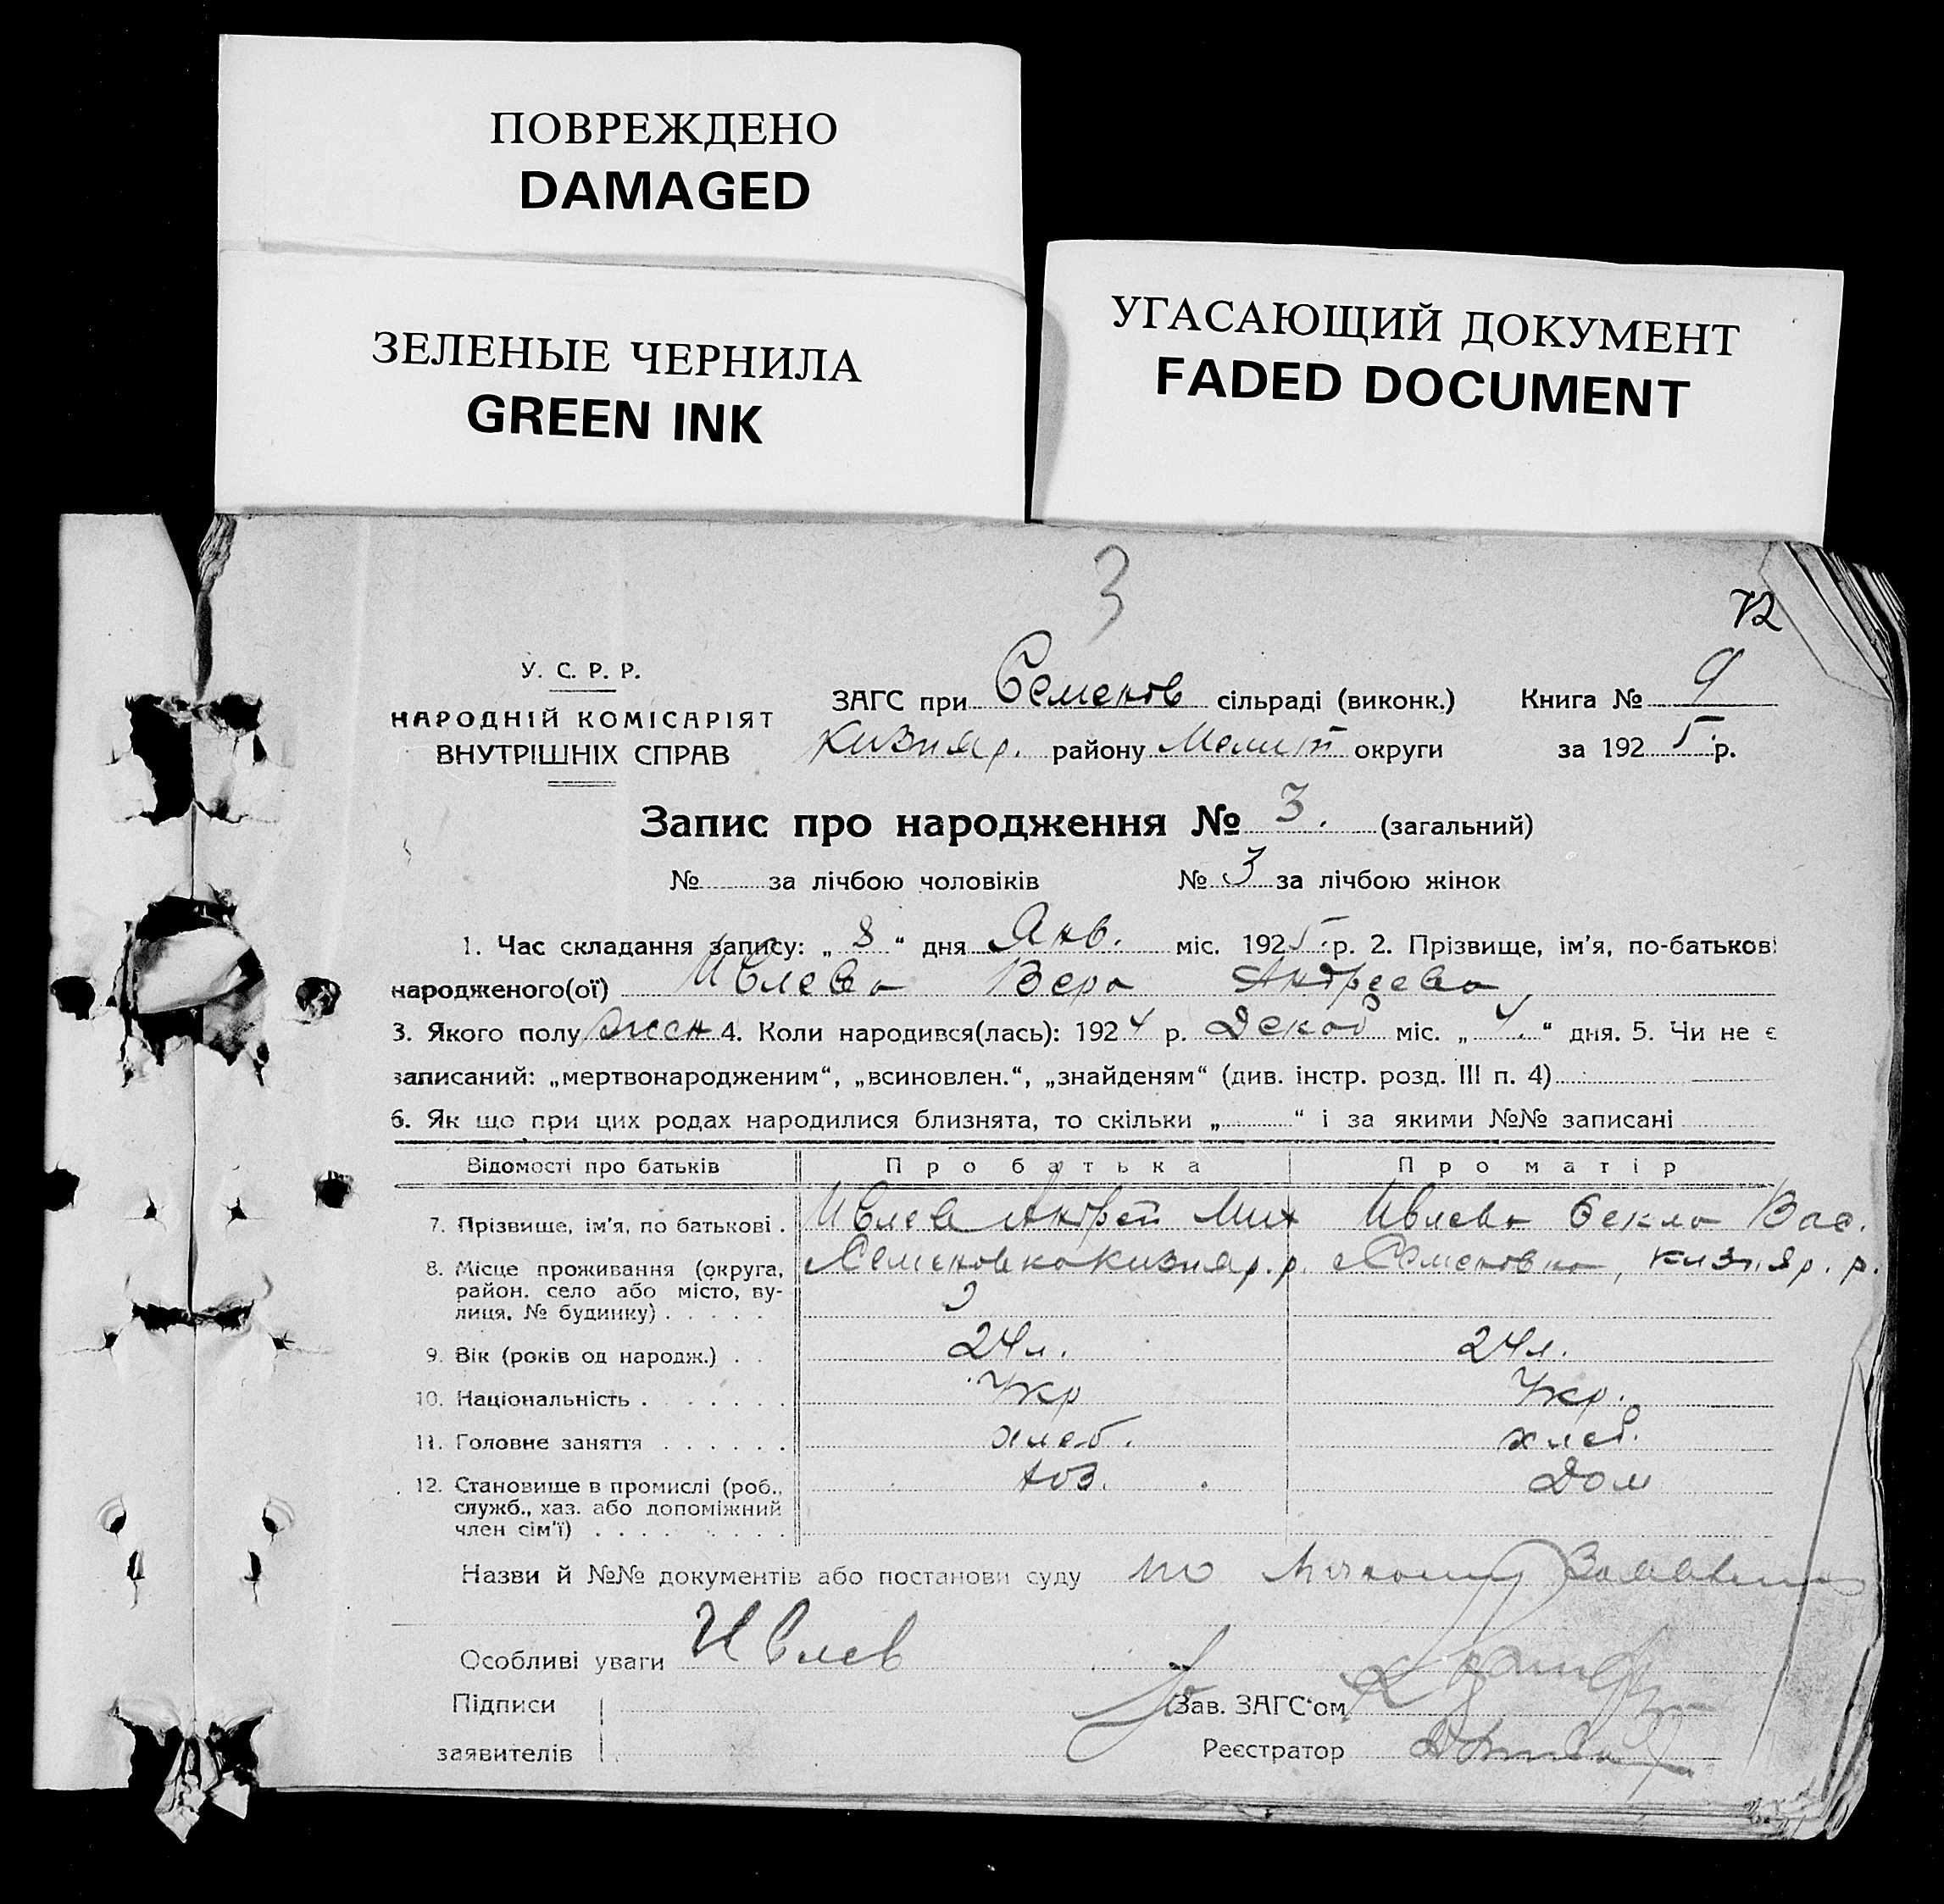 ПОВРЕЖДЕНО
DAMAGED
ЗЕЛЕНЫЕ ЧЕРНИЛА
GREEN INK
УГАСАЮЩИЙ ДОКУМЕНТ
FADED DOCUMENT
3
72
У. С. Р. Р.
НАРОДНІЙ КОМІСАРІЯТ
ВНУТРІШНІХ СПРАВ
ЗАГС при Семенов сільраді (виконк.) Книга № 9
Кизияр. району Мелит округи за 1925 р.
Запис про народження № 3. (загальний)
№ за лічбою чоловіків № 3 за лічбою жінок
1. Час складання запису: „ 8 “ дня Янв. міс. 1925 р. 2. Прізвище, ім'я, по-батькові
народженого(ої) Ивлева Вера Андреева
3. Якого полу жен 4. Коли народився(лась): 1924 р. Декаб міс. „ 4. “ дня. 5. Чи не є
записаний: „мертвонародженим“, „всиновлен.“, „знайденям“ (див. інстр. розд. III п. 4)
6. Як що при цих родах народилися близнята, то скільки „ “ і за якими №№ записані
Відомості про батьків Про батька Про матір
7. Прізвище, ім'я, по батькові . Ивлев Андрей Мих Ивлева Фекла Вас.
8. Місце проживання (округа, Семеновка Кизияр. р. Семеновка, Кизияр. р.
район, село або місто, ву-
лиця, № будинку) . . . . .
9. Вік (років од народж.) . . 24 л. 24 л.
10. Національність . . . . . . . Укр Укр.
11. Головне заняття . . . . . . хлеб. хлеб.
12. Становище в промислі (роб., хоз. Дом
служб., хаз. або допоміжний
член сім'ї) . . . . . . . . .
Назви й №№ документів або постанови суду по
Ивлев
Особливі уваги
Підписи Зав. ЗАГС'ом
заявителів Реєстратор